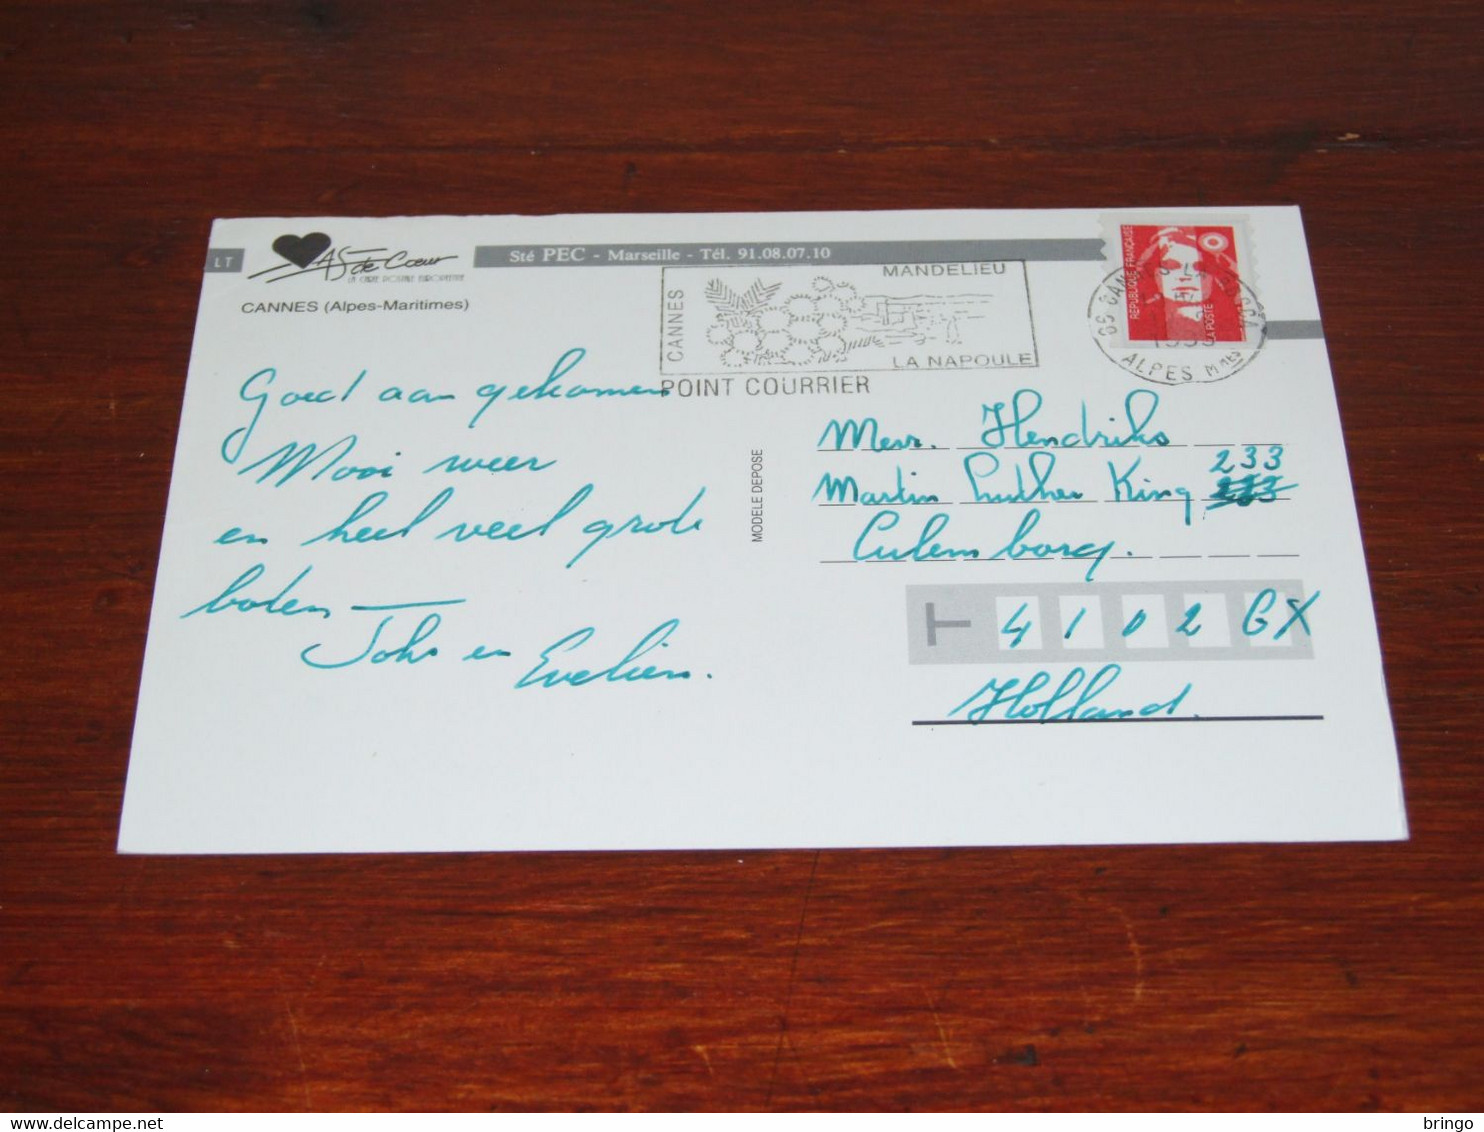 LT
AS de Cœur
LA CARTE POSTALE EUROPEENNE
Sté PEC - Marseille - Tél. 91.08.07.10
CANNES (Alpes-Maritimes)
CANNES
MANDELIEU
LA NAPOULE
POINT COURRIER
RÉPUBLIQUE FRANÇAISE
LA POSTE
ALPES Mmes
Goed aan gekomen
Mooi weer
en heel veel grote
boten
John en
Evelien.
MODELE DEPOSE
Mevr. Hendriks
233
Martin Luther King
Culemborg.
T 4102 GX
Holland.
delcampe.net
bringo